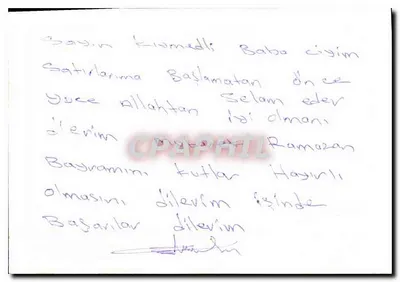 Sayın Kıymedli Baba ciyim
Satırlarıma Başlamatan önce
yüce Allahtan Selam eder
iyi olmanı
dilerim Ramazan
Bayramını kutlar Hayırlı
olmasını dilerim işinde
Başarılar dilerim